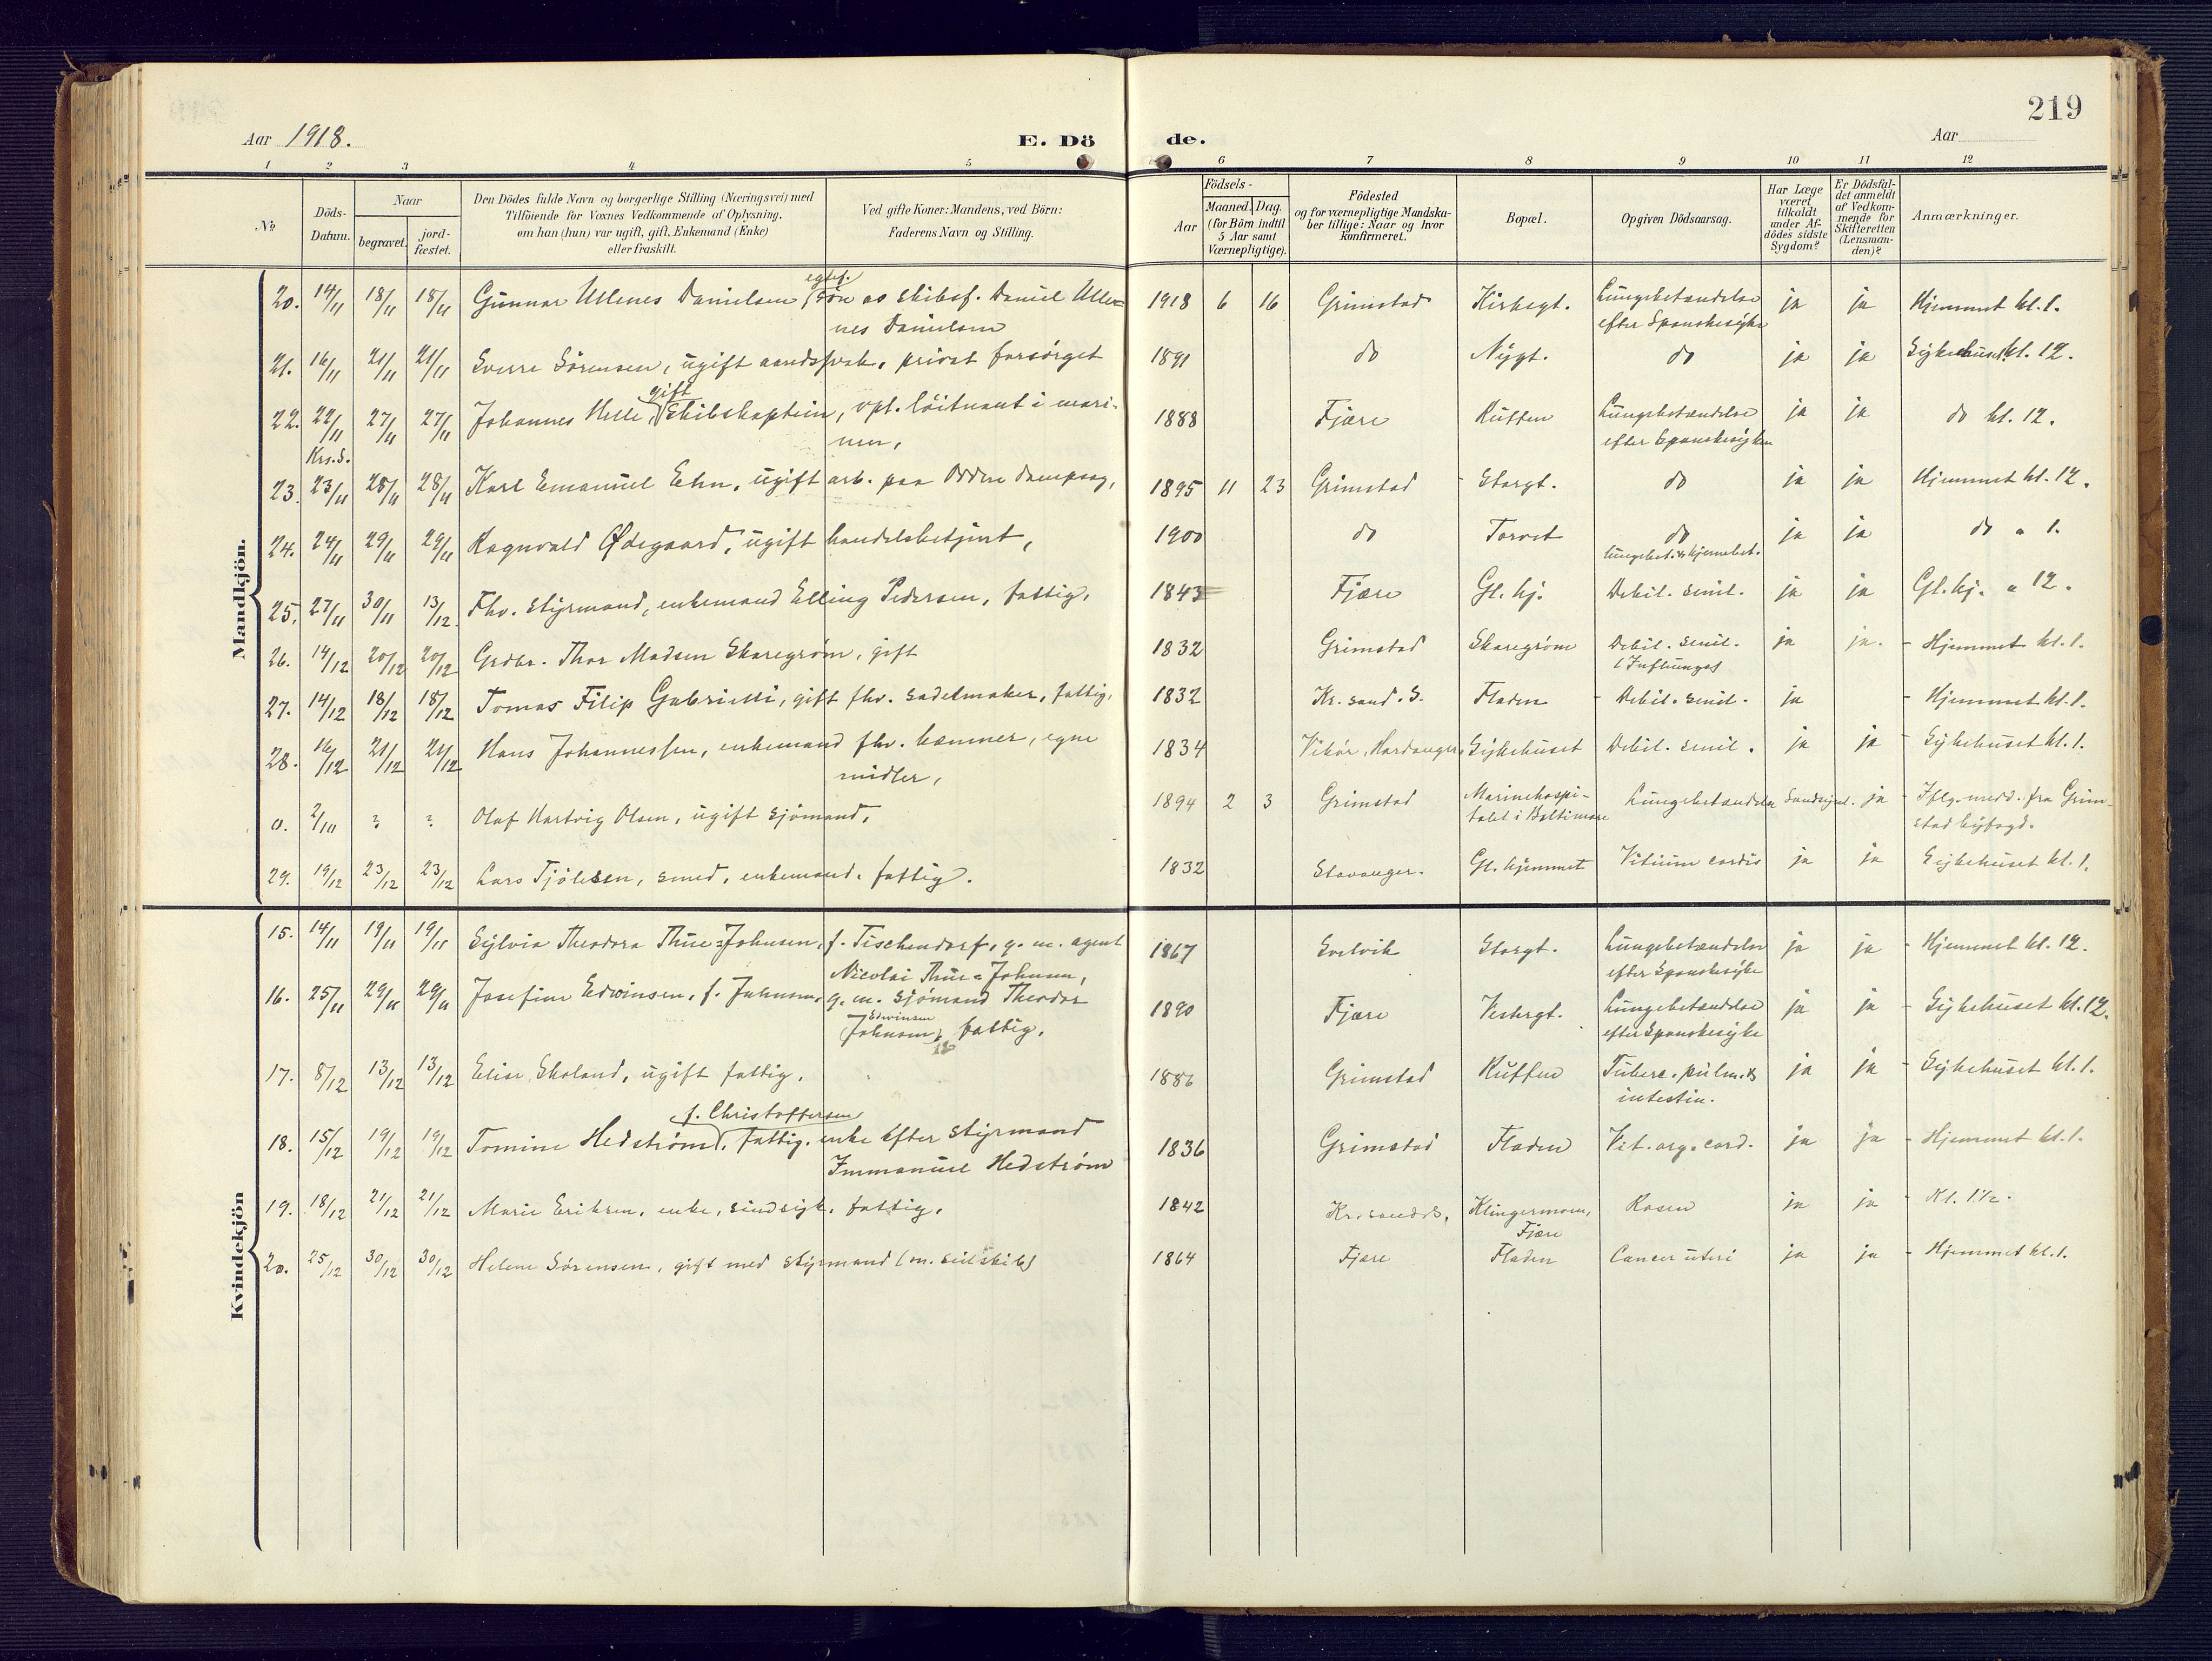 219
Aar 1918.
E. Dö de.
Aar
1 2 3 4 5 6 7 8 9 10 11 12
No
Döds-Datum.
Naar
begravet.
jord-fæstet.
Den Dödes fulde Navn og borgerlige Stilling (Næringsvei) med
Tilföiende for Voxnes Vedkommende af Oplysning,
om han (hun) var ugift, gift, Enkemand (Enke)
eller fraskilt.
Ved gifte Koner: Mandens, ved Börn:
Faderens Navn og Stilling.
Födsels-
Aar
Maaned. Dag.
(for Börn indtil
5 Aar samt
Værnepligtige).
Födested
og for værnepligtige Mandska-
ber tillige: Naar og hvor
Konfirmeret.
Bopæl.
Opgiven Dödsaarsag.
Har Læge
været
tilkaldt
under Af-
dödes sidste
Sygdom?
Er Dödsfal-
det anmeldt
af Vedkom-
mende for
Skifteretten
(Lensman-
den)?
Anmærkninger.
Mandkjön.
20. 14/11 18/11 18/11 Gunnar Ullenes Danielsen, egtef. søn av skibsf. Daniel Ulle- 1918 6 16 Grimstad Kirkegt. Lungebetændelse ja ja Hjemmet kl. 1.
nes Danielsen efter Spanskesyke
21. 16/11 21/11 21/11 Sverre Sørensen, ugift aandssvak, privat forsørget 1891 do Nygt. do ja ja Sykehuset kl. 12.
22. 22/11 27/11 27/11 Johannes Helle, gift Skibskaptein, vpl. løitnant i mari- 1888 Fjære Ruffen Lungebetændelse ja ja do kl. 12.
Krs.S. nen, efter Spanskesyken
23. 23/11 28/11 28/11 Karl Emanuel Ehn, ugift arb. paa Odden dampsag, 1895 11 23 Grimstad Storgt. do ja ja Hjemmet kl. 12.
24. 24/11 29/11 29/11 Ragnvald Ødegaard, ugift handelsbetjent, 1900 do Torvet do ja ja do " 1.
lungebet. & hjernebet.
25. 27/11 30/11 13/12. Fhv. Styrmand, enkemand Elling Pedersen, fattig, 1843 Fjære Gl. hj. Debil. senil. ja ja Gl. hj. " 12.
26. 14/12 20/12 20/12 Grdbr. Thor Madsen Skaregrøm, gift 1832 Grimstad Skaregrøm Debil. senil. ja ja. - Hjemmet kl. 1.
27. 14/12 18/12 18/12 Tomas Filip Gabrielli, gift fhv. sadelmaker, fattig, 1832 Kr.sand. S. Fladen - Debil. senil. ja - Hjemmet kl. 1.
28. 16/12 21/12 21/12 Hans Johannessen, enkemand fhv. kæmner, egne 1834 Vikør, Hardanger Sykehuset Debil. senil. ja ja - Sykehuset kl. 1.
midler,
0. 2/10 ? ? Olaf Hartvig Olsen, ugift sjømand, 1894 2 3 Grimstad Marinehospi- Lungebetændelse ja - Iflg. medd. fra Grim-
talet i Baltimore stad byfogd.
29. 19/12 23/12 23/12 Lars Tjølsen, smed, enkemand, fattig. 1832 Stavanger. Gl. hjemmet Vitium cordis ja ja - Sykehuset kl. 1.
Kvindekjön
15. 14/11 19/11 19/11 Sylvia Theodora Thue=Johnsen, f. Tischendorf, g. m. agent 1867 Svelvik Storgt. Lungebetændelse ja ja - Hjemmet kl. 12.
Nicolai Thue=Johnsen, efter Spanskesyke
16. 25/11 29/11 29/11 Josefine Edvinsen, f. Johnsen, g. m. sjømand Theodor 1890 Fjære Vestergt. Lungebetændelse ja ja - Sykehuset kl. 12.
Edvinsen
Johnsen, fattig. efter Spanskesyke
17. 8/12 13/12 13/12 Elise Skoland, ugift fattig. 1886 Grimstad Ruffen Tuberc. pulm. & ja ja - Sykehuset kl. 1.
intestin.
f. Christoffersen
18. 15/12 19/12 19/12 Tomine Hedstrøm, fattig, enke efter styrmand 1836 Grimstad Fladen Vit. org. cord. ja ja - Hjemmet kl. 1.
Immanuel Hedstrøm
19. 18/12 21/12 21/12 Marie Eriksen, enke, sindsyk, fattig. 1842 Kr.sand S. Klingermoen, Rosen ja ja - Kl. 1½.
Fjære
20. 25/12 30/12 30/12 Helene Sørensen, gift med styrmand (m. seilskib) 1864 Fjære Fladen Cancer uteri ja ja - Hjemmet kl. 1.